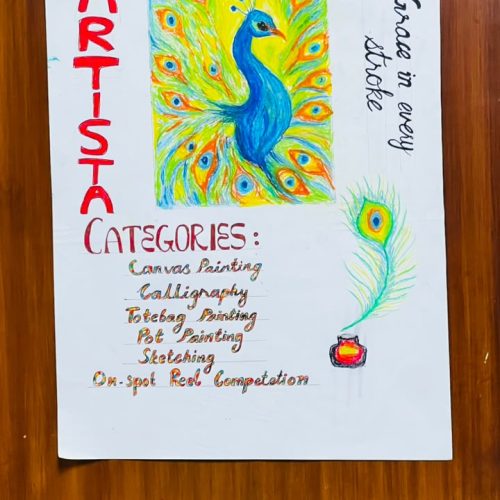 ARTISTA
Grace in every
stroke
CATEGORIES:
Canvas Painting
Calligraphy
Totebag Painting
Pot Painting
Sketching
On-spot Reel Competation